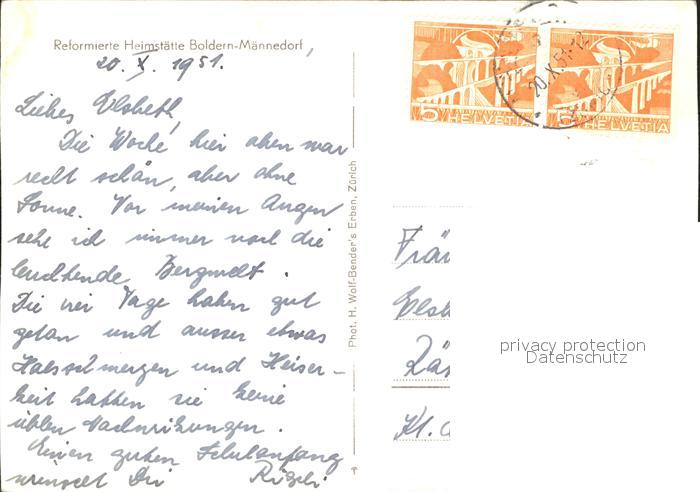 Reformierte Heimstätte Boldern-Männedorf,
20. X. 1951.
Liebes Elsbeth,
Die Woche hier oben war
recht schön, aber ohne
Sonne. Vor meinen Augen
sehe ich immer noch die
leuchtende Bergwelt.
Die drei Tage haben gut
getan und ausser etwas
Halsschmerzen und Heiser-
keit hatten sie keine
üblen Nachwirkungen.
Einen guten Schulanfang
wünscht Dir
Phot. H. Wolf-Bender's Erben, Zürich
5 HELVETIA
5 HELVETIA
20.X.51-12
Fräu
Elsb
Kt.
privacy protection
Datenschutz